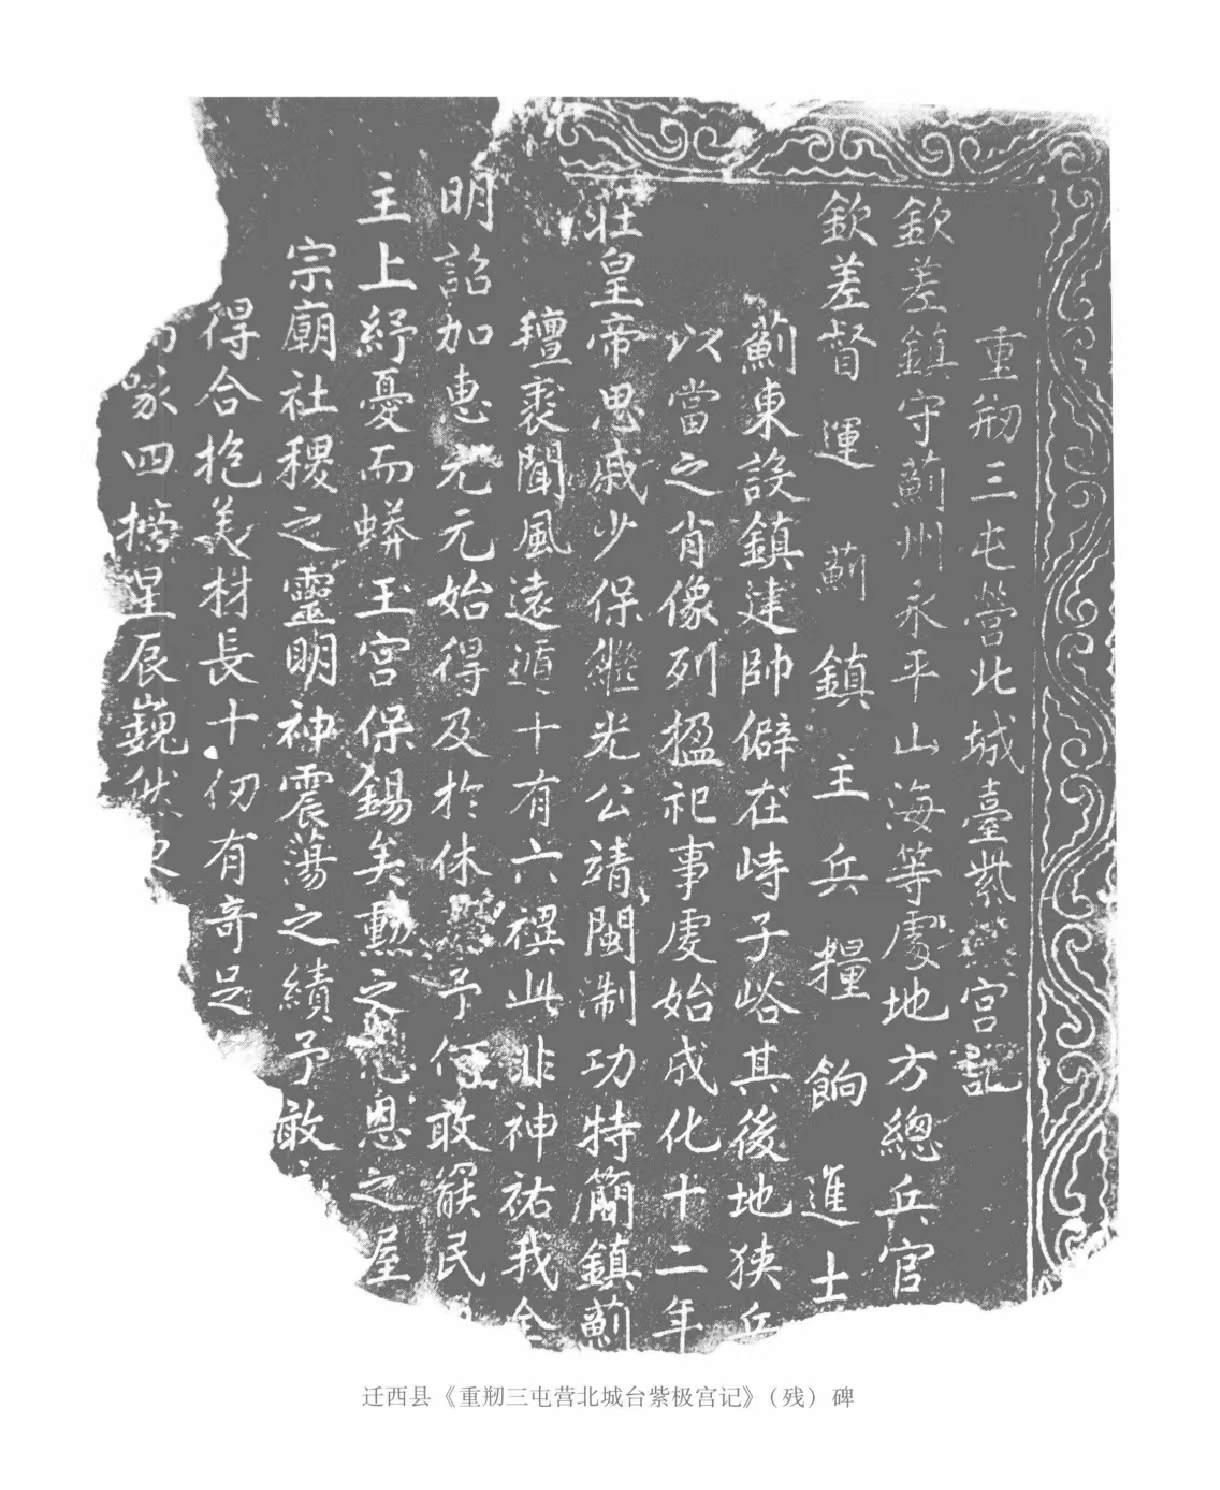 重剏三屯營北城臺紫宮記
欽差鎮守薊州永平山海等處地方總兵官
欽差督運薊鎮主兵糧餉進士
薊東設鎮建帥僻在峙子峪其後地狹兵
以當之肖像列楹祀事虔始成化十二年
莊皇帝思戚少保繼光公靖閩浙功特簡鎮薊
氊裘聞風遠遁十有六禩此非神祐我全
明詔加惠元元始得及於休予何敢罷民
主上紓憂而蟒玉宮保錫矣勲之恩之屋
宗廟社稷之靈明神震蕩之績予敢
得合抱美材長十仞有奇足
啄四榜星辰巍然
迁西县《重剏三屯营北城台紫极宫记》（残）碑